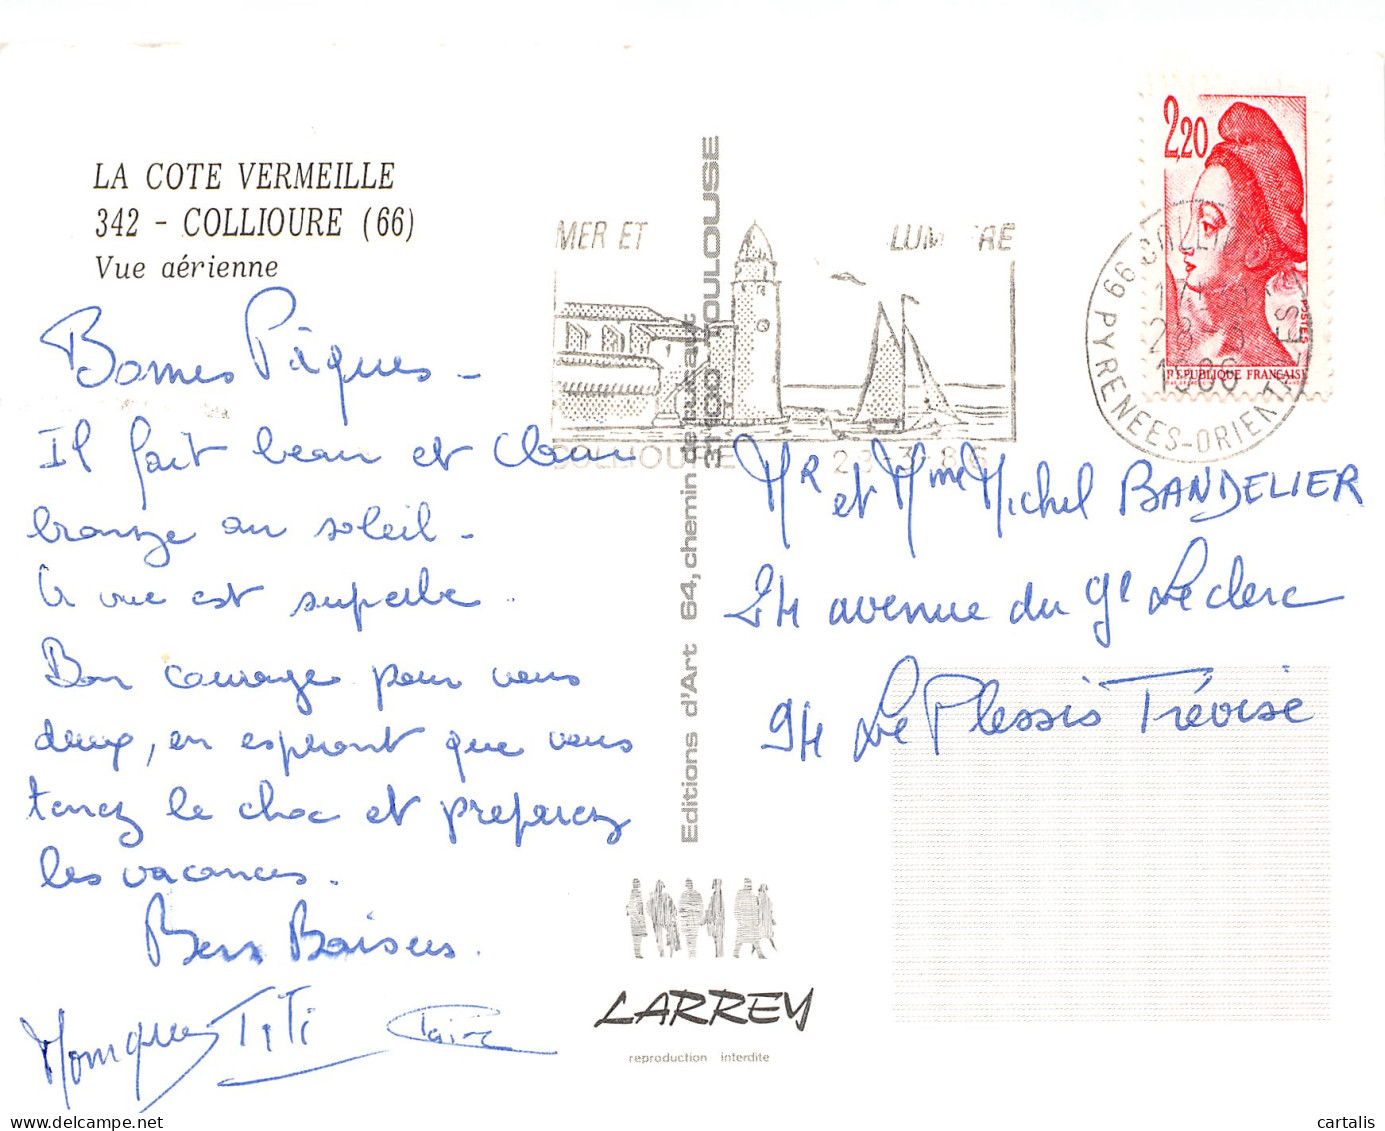 LA COTE VERMEILLE
342 - COLLIOURE (66)
Vue aérienne
Bonnes Pâques -
Il fait beau et Claire
bronze au soleil -
la vue est superbe.
Bon courage pour vous
deux, en espérant que vous
tenez le choc et préparez
les vacances.
Bons Baisers.
Monique TiTi Claire
Editions d'Art 64, chemin de
31100 TOULOUSE
LARREY
reproduction interdite
MER ET LUMIERE
COLLIOURE 28-3-86
2,20
POSTES
REPUBLIQUE FRANÇAISE
66 COLLIOURE
28-3
1986
PYRENEES-ORIENTALES
Mr et Mme Michel BANDELIER
24 avenue du Gl Leclerc
94 Le Plessis Trévise
delcampe.net
cartalis